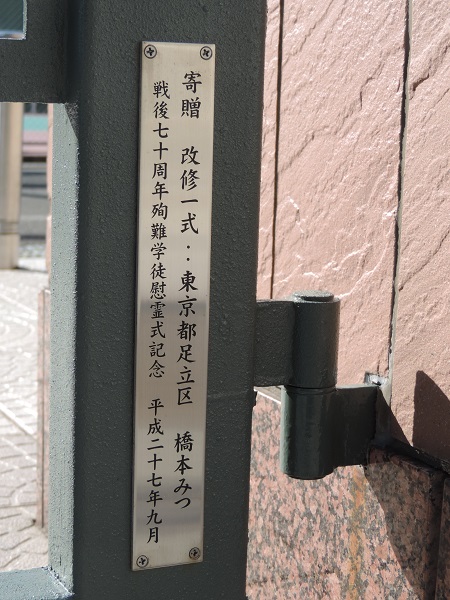 寄贈　改修一式：東京都足立区　橋本みつ
戦後七十周年殉難学徒慰霊式記念　平成二十七年九月